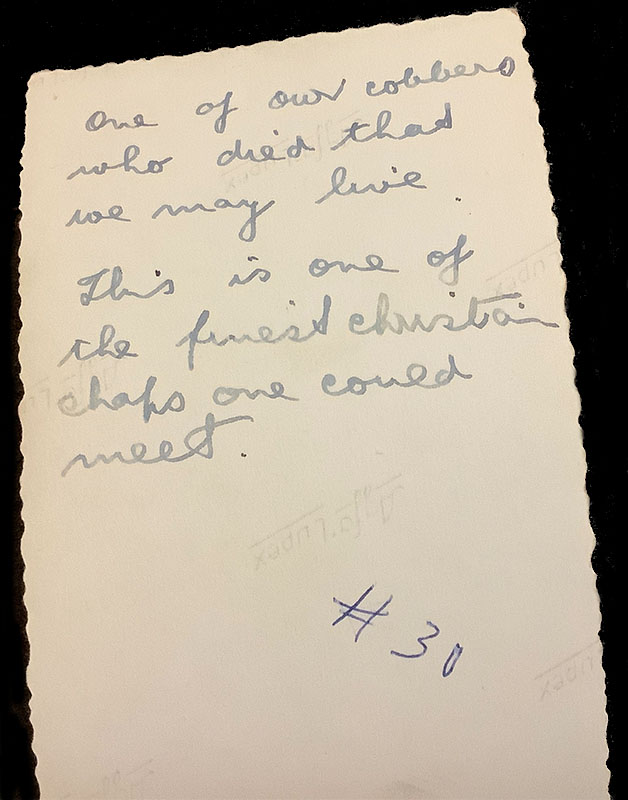 One of our cobbers
who died that
we may live.
This is one of
the finest christain
chaps one could
meet.
# 30